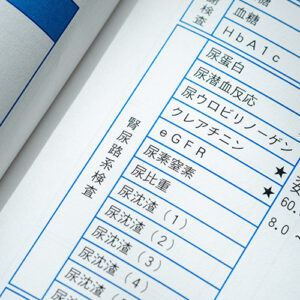 検査
血糖
HbA1c
腎尿路系検査
尿蛋白
尿潜血反応
尿ウロビリノーゲン
クレアチニン
eGFR
尿素窒素 ★
尿比重 ★
尿沈渣（1）
尿沈渣（2）
尿沈渣（3）
尿沈渣（4）
60.
8.0 ~